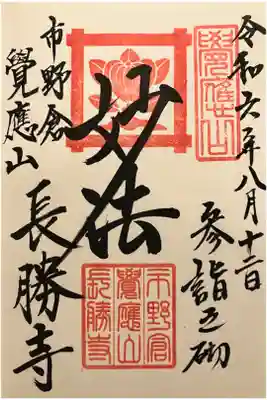 令和六年八月十二日
参詣之砌
妙法
市野倉
覺應山
長勝寺
覺應山
市野倉
覺應山
長勝寺